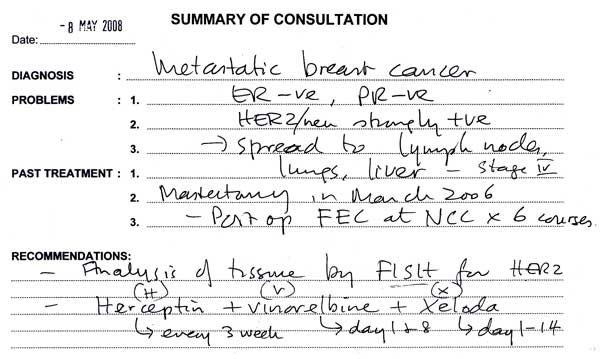 SUMMARY OF CONSULTATION
Date: -8 MAY 2008
DIAGNOSIS : Metastatic breast cancer
PROBLEMS : 1. ER -ve, PR -ve
2. HER2/neu strongly +ve
3. → spread to lymph nodes,
PAST TREATMENT : 1. lungs, liver - stage IV
2. Mastectomy in March 2006
3. - Post op FEC at NCC x 6 courses.
RECOMMENDATIONS:
- Analysis of tissue by FISH for HER2
(H) (V) (X)
- Herceptin + vinorelbine + Xeloda
↳ every 3 week ↳ day 1 + 8 ↳ day 1-14